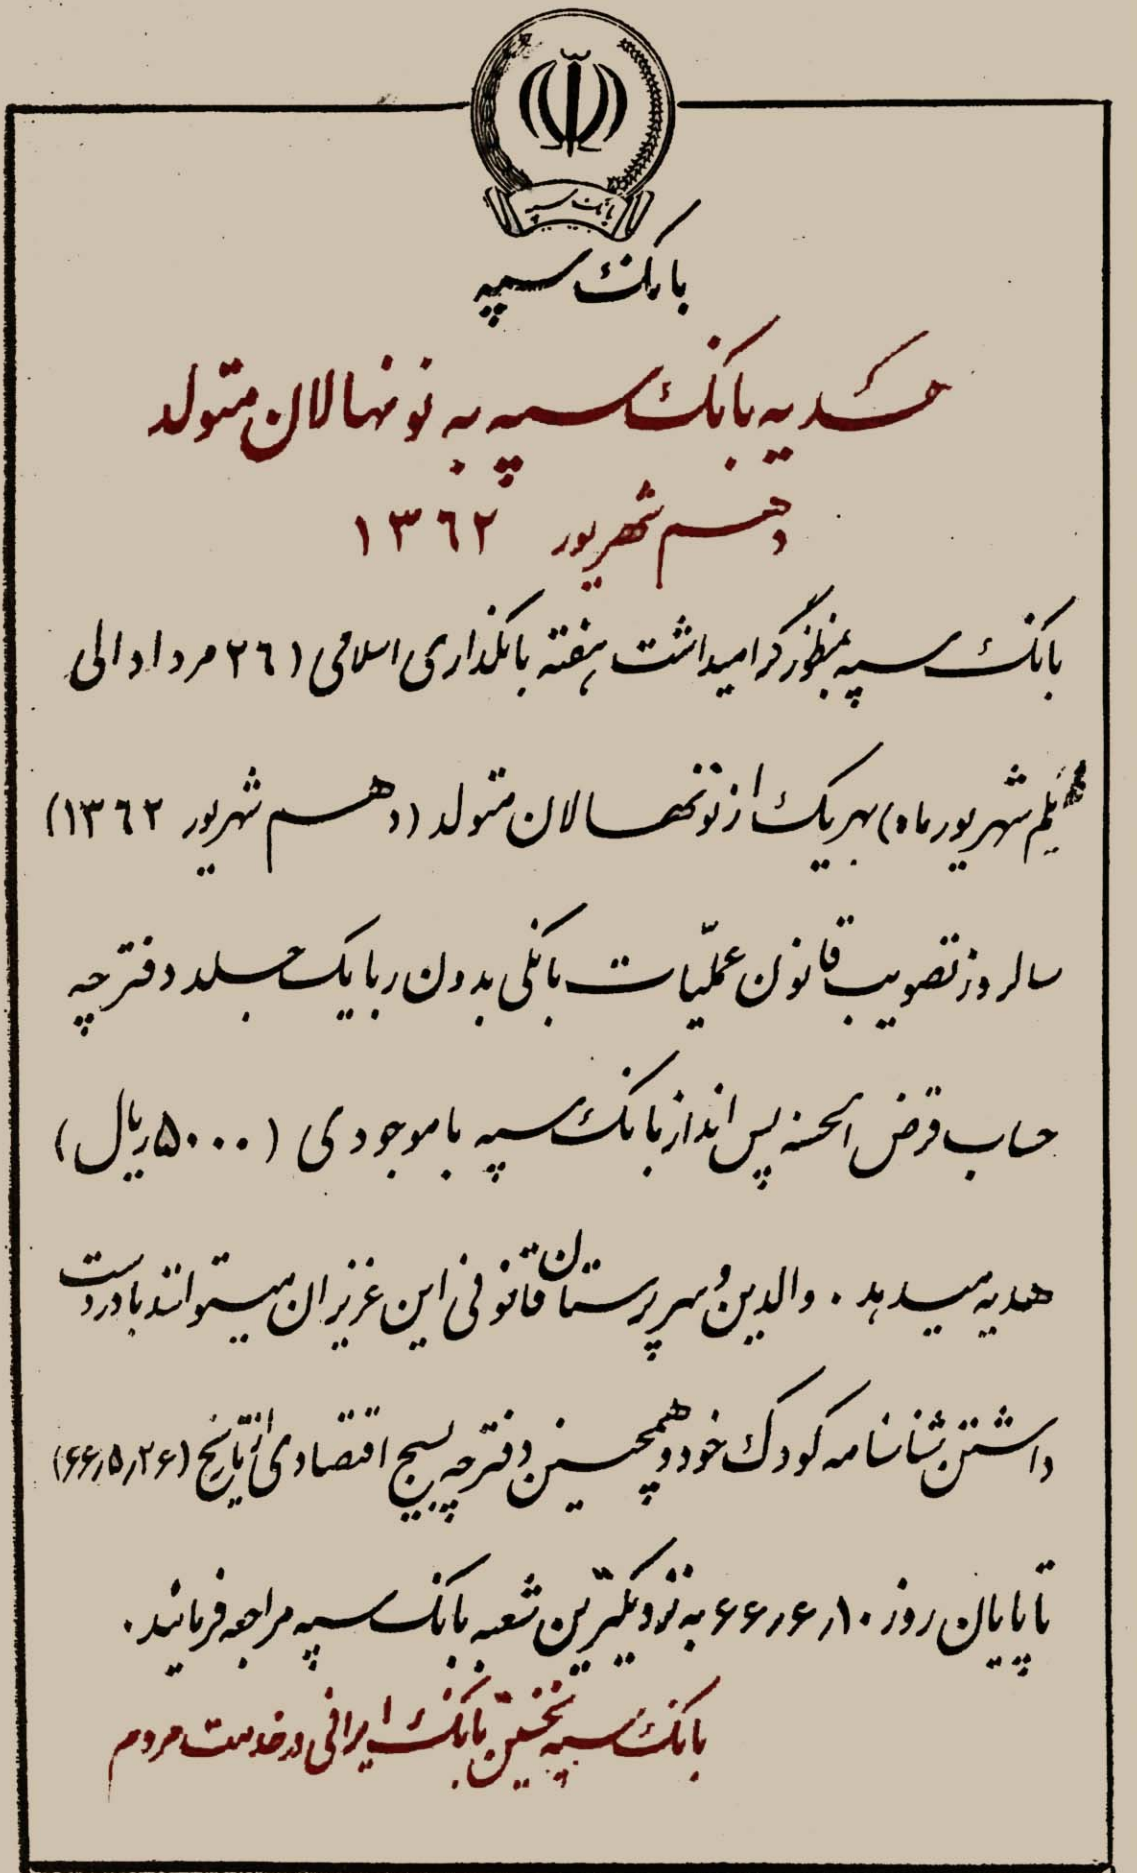 بانک سپه
بانک سپه
هدیه بانک سپه به نونهالان متولد
دهم شهریور ۱۳۶۲
بانک سپه بمنظور گرامیداشت هفته بانکداری اسلامی (۲۶ مرداد الی
یکم شهریور ماه) بهریک از نونهالان متولد (دهم شهریور ۱۳۶۲)
سالروز تصویب قانون عملیّات بانکی بدون ربا یک جلد دفترچه
حساب قرض الحسنه پس انداز بانک سپه با موجودی (۵۰۰۰ ریال)
هدیه میدهد. والدین و سرپرستان قانونی این عزیزان میتوانند با در دست
داشتن شناسنامه کودک خود و همچنین دفترچه بسیج اقتصادی از تاریخ (۶۶٫۵٫۲۶)
تا پایان روز ۶۶٫۶٫۱۰ به نزدیکترین شعبه بانک سپه مراجعه فرمائید.
بانک سپه نخستین بانک ایرانی در خدمت مردم